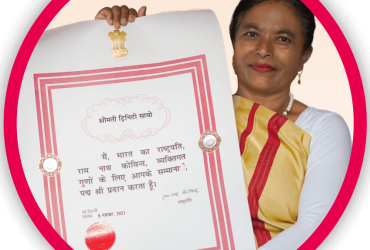 श्रीमती ट्रिनिटी सायो
मैं, भारत का राष्ट्रपति,
राम नाथ कोविन्द, व्यक्तिगत
गुणों के लिए आपके सम्मानार्थ
पद्म श्री प्रदान करता हूँ।
नई दिल्ली
8 नवम्बर, 2021
राष्ट्रपति